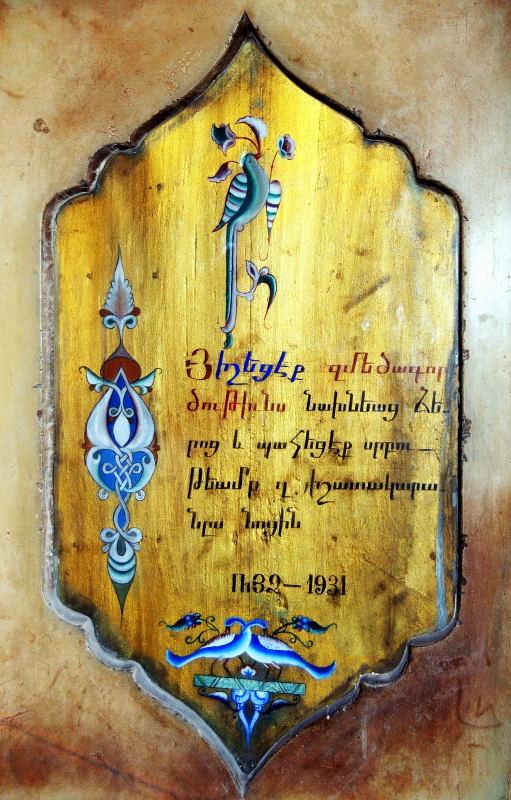 Յիշեցէք զմեծագոր
ծութիւնս նախնեաց ձե-
րոց և պահեցէք սրբու—
թեամբ զյիշատակարա
նըս նոցին
ՌՅՁ—1931